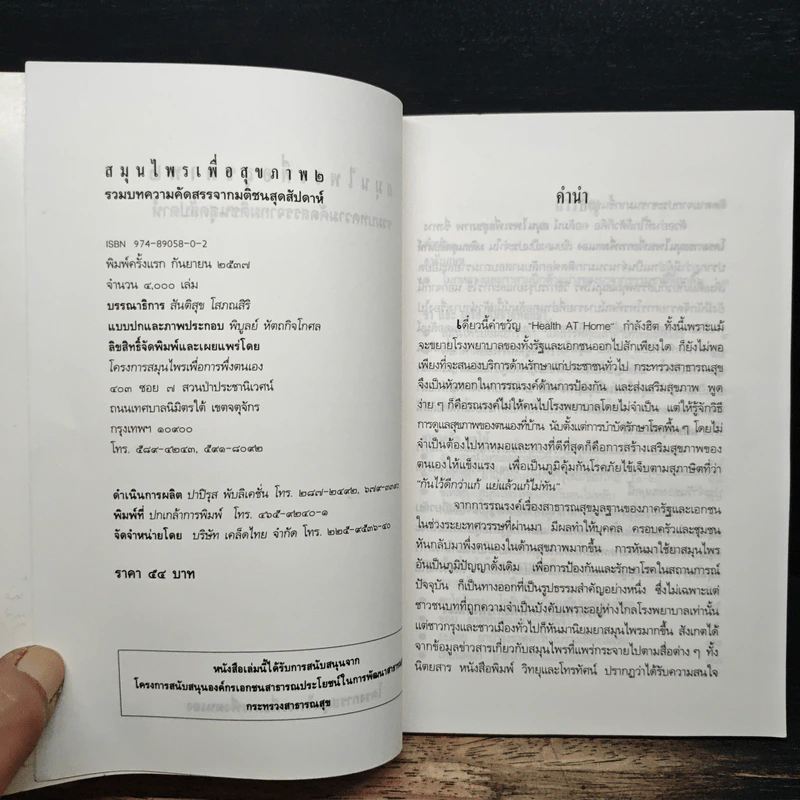 สมุนไพรเพื่อสุขภาพ๒
รวมบทความคัดสรรจากมติชนสุดสัปดาห์
ISBN 974-89058-0-2
พิมพ์ครั้งแรก กันยายน ๒๕๓๗
จำนวน ๔,๐๐๐ เล่ม
บรรณาธิการ สันติสุข โสภณสิริ
แบบปกและภาพประกอบ พิบูลย์ หัตถกิจโกศล
ลิขสิทธิ์จัดพิมพ์และเผยแพร่โดย
โครงการสมุนไพรเพื่อการพึ่งตนเอง
๔๐๓ ซอย ๗ สวนป่าประชานิเวศน์
ถนนเทศบาลนิมิตรใต้ เขตจตุจักร
กรุงเทพฯ ๑๐๙๐๐
โทร. ๕๘๙-๔๒๔๓, ๕๙๑-๘๐๙๒
ดำเนินการผลิต ปาปิรุส พับลิเคชั่น โทร. ๒๘๗-๒๔๙๒,
พิมพ์ที่ ปกเกล้าการพิมพ์ โทร. ๔๖๕-๙๒๔๐-๑
จัดจำหน่ายโดย บริษัท เคล็ดไทย จำกัด โทร. ๒๒๕-๙๕๓๖-๔๐
ราคา ๕๔ บาท
หนังสือเล่มนี้ได้รับการสนับสนุนจาก
โครงการสนับสนุนองค์กรเอกชนสาธารณประโยชน์ในการพัฒนาสาธารณสุข
กระทรวงสาธารณสุข
คำนำ
เดี๋ยวนี้คำขวัญ "Health AT Home" กำลังฮิต ทั้งนี้เพราะแม้
จะขยายโรงพยาบาลของทั้งรัฐและเอกชนออกไปสักเพียงใด ก็ยังไม่พอ
เพียงที่จะสนองบริการด้านรักษาแก่ประชาชนทั่วไป กระทรวงสาธารณสุข
จึงเป็นหัวหอกในการรณรงค์ด้านการป้องกัน และส่งเสริมสุขภาพ พูด
ง่าย ๆ ก็คือรณรงค์ไม่ให้คนไปโรงพยาบาลโดยไม่จำเป็น แต่ให้รู้จักวิธี
การดูแลสุขภาพของตนเองที่บ้าน นับตั้งแต่การบำบัดรักษาโรคพื้น ๆ โดยไม่
จำเป็นต้องไปหาหมอและทางที่ดีที่สุดก็คือการสร้างเสริมสุขภาพของ
ตนเองให้แข็งแรง เพื่อเป็นภูมิคุ้มกันโรคภัยไข้เจ็บตามสุภาษิตที่ว่า
"กันไว้ดีกว่าแก้ แย่แล้วแก้ไม่ทัน"
จากการรณรงค์เรื่องสาธารณสุขมูลฐานของภาครัฐและเอกชน
ในช่วงระยะทศวรรษที่ผ่านมา มีผลทำให้บุคคล ครอบครัวและชุมชน
หันกลับมาพึ่งตนเองในด้านสุขภาพมากขึ้น การหันมาใช้ยาสมุนไพร
อันเป็นภูมิปัญญาดั้งเดิม เพื่อการป้องกันและรักษาโรคในสถานการณ์
ปัจจุบัน ก็เป็นทางออกที่เป็นรูปธรรมสำคัญอย่างหนึ่ง ซึ่งไม่เฉพาะแต่
ชาวชนบทที่ถูกความจำเป็นบังคับเพราะอยู่ห่างไกลโรงพยาบาลเท่านั้น
แต่ชาวกรุงและชาวเมืองทั่วไปก็หันมานิยมยาสมุนไพรมากขึ้น สังเกตได้
จากข้อมูลข่าวสารเกี่ยวกับสมุนไพรที่แพร่กระจายไปตามสื่อต่าง ๆ ทั้ง
นิตยสาร หนังสือพิมพ์ วิทยุและโทรทัศน์ ปรากฏว่าได้รับความสนใจ